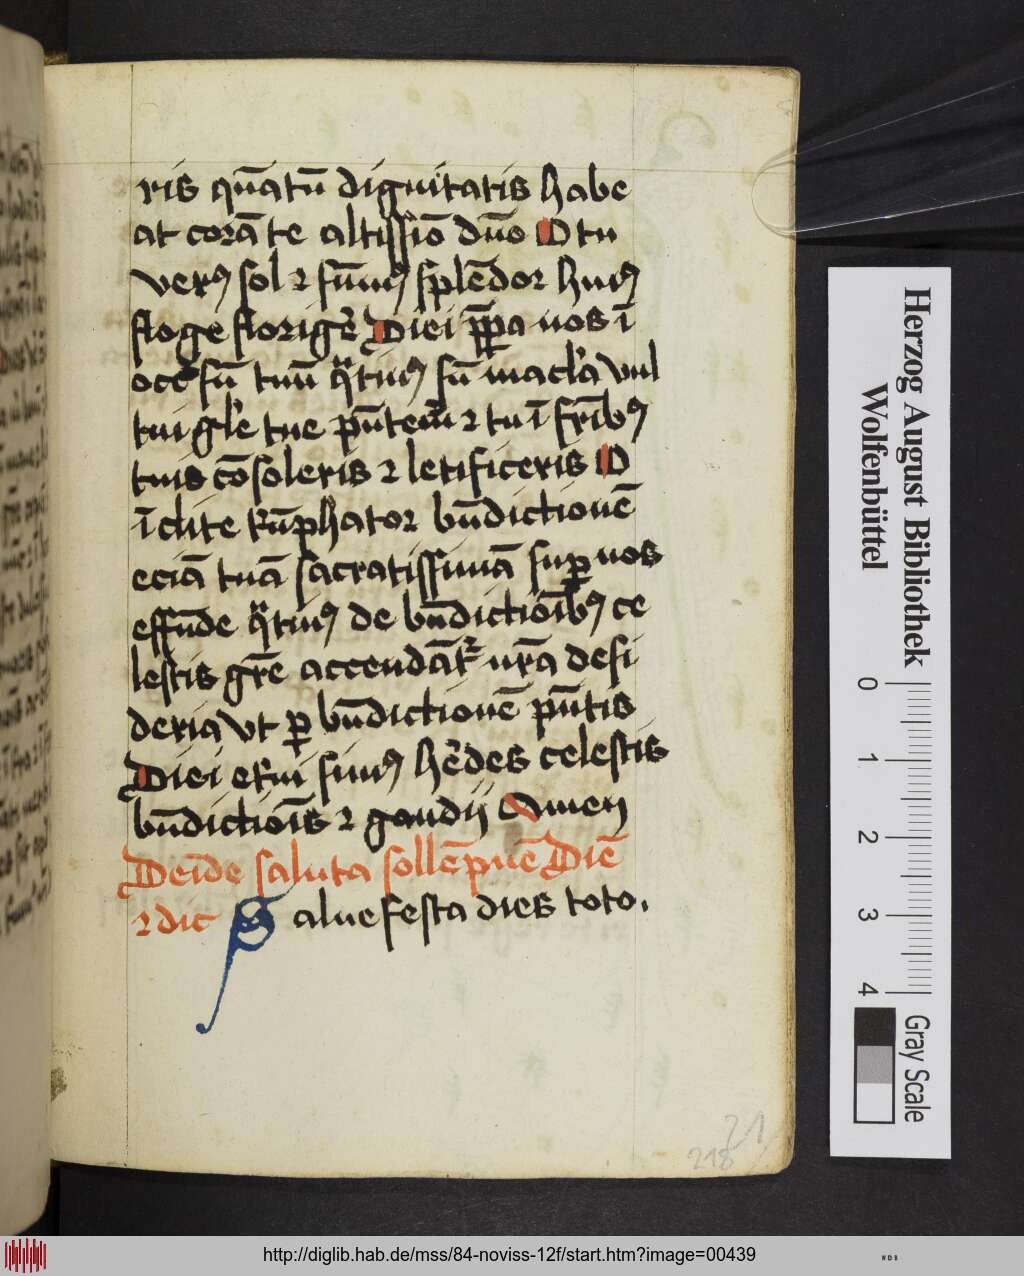 ris qua̅tu̅ dignitatis habe
at cora̅ te altissi̅o dn̅o O tu
verꝰ sol ⁊ su̅mꝰ sple̅dor huiꝰ
floge floriger̾ Diei pp̅a nos i̅
occ̅su̅ tuu̅ q̈tinꝰ su̅ macl̾a vul
tui gl̾e tue pn̅tem̅ ⁊ tu i̅ fr̅ibꝰ
tuis co̅soleris ⁊ letificeris O
i̅clite tru̅phator bn̅dictione̅
ecia̅ tua̅ sacratissima̅ suꝑ nos
effu̅de q̈tinꝰ de bn̅dictio̅ibꝰ ce
lestis gr̅e accenda̅t᷑ nr̅a desi
deria vt ꝑ bn̅dictione̅ pn̅tis
Diei et̾ni simꝰ her̾des celestis
bn̅dictio̅is ⁊ gaudij Amen
Dei̅de saluta solle̅pne̅ Die̅
⁊ dic Salue festa dies toto.
218
21
Herzog August Bibliothek
Wolfenbüttel
0 1 2 3 4
Gray Scale
http://diglib.hab.de/mss/84-noviss-12f/start.htm?image=00439